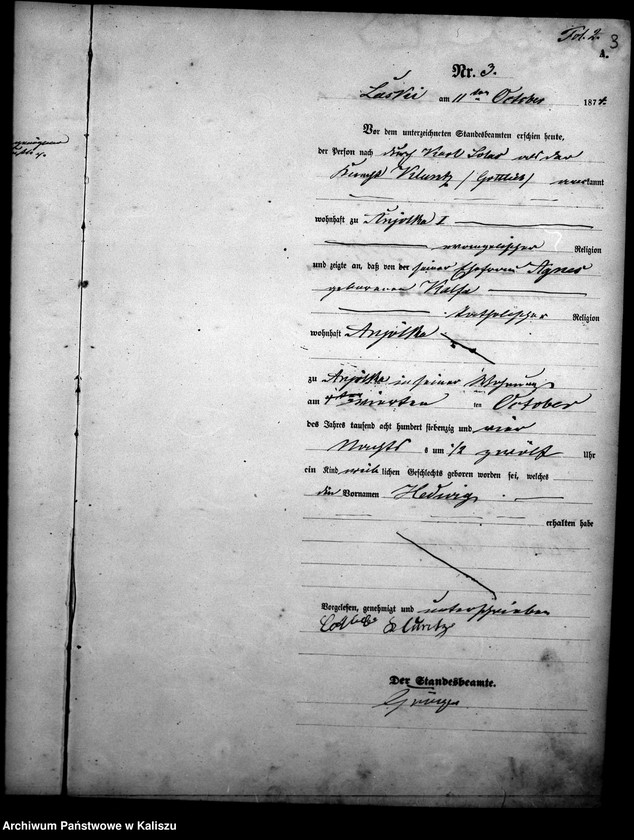 Fol. 2.
3
A.
Nr. 3.
Laski am 11 ten October 1874.
Vor dem unterzeichneten Standesbeamten erschien heute,
der Person nach durch Karl aus der
(Gottlieb) anerkannt
wohnhaft zu Anjolka I
evangelischer Religion
und zeigte an, daß von der seiner Ehefrau Agnes
geborenen Kalsa
katholischer Religion
wohnhaft Anjolka
zu Anjolka in seiner Wohnung
am vierten ten October
des Jahres tausend acht hundert siebenzig und vier
Nachts s um 1/2 zwölf Uhr
ein Kind weiblichen Geschlechts geboren worden sei, welches
den Vornamen Hedwig
erhalten habe
Vorgelesen, genehmigt und unterschrieben
Der Standesbeamte.
Archiwum Państwowe w Kaliszu